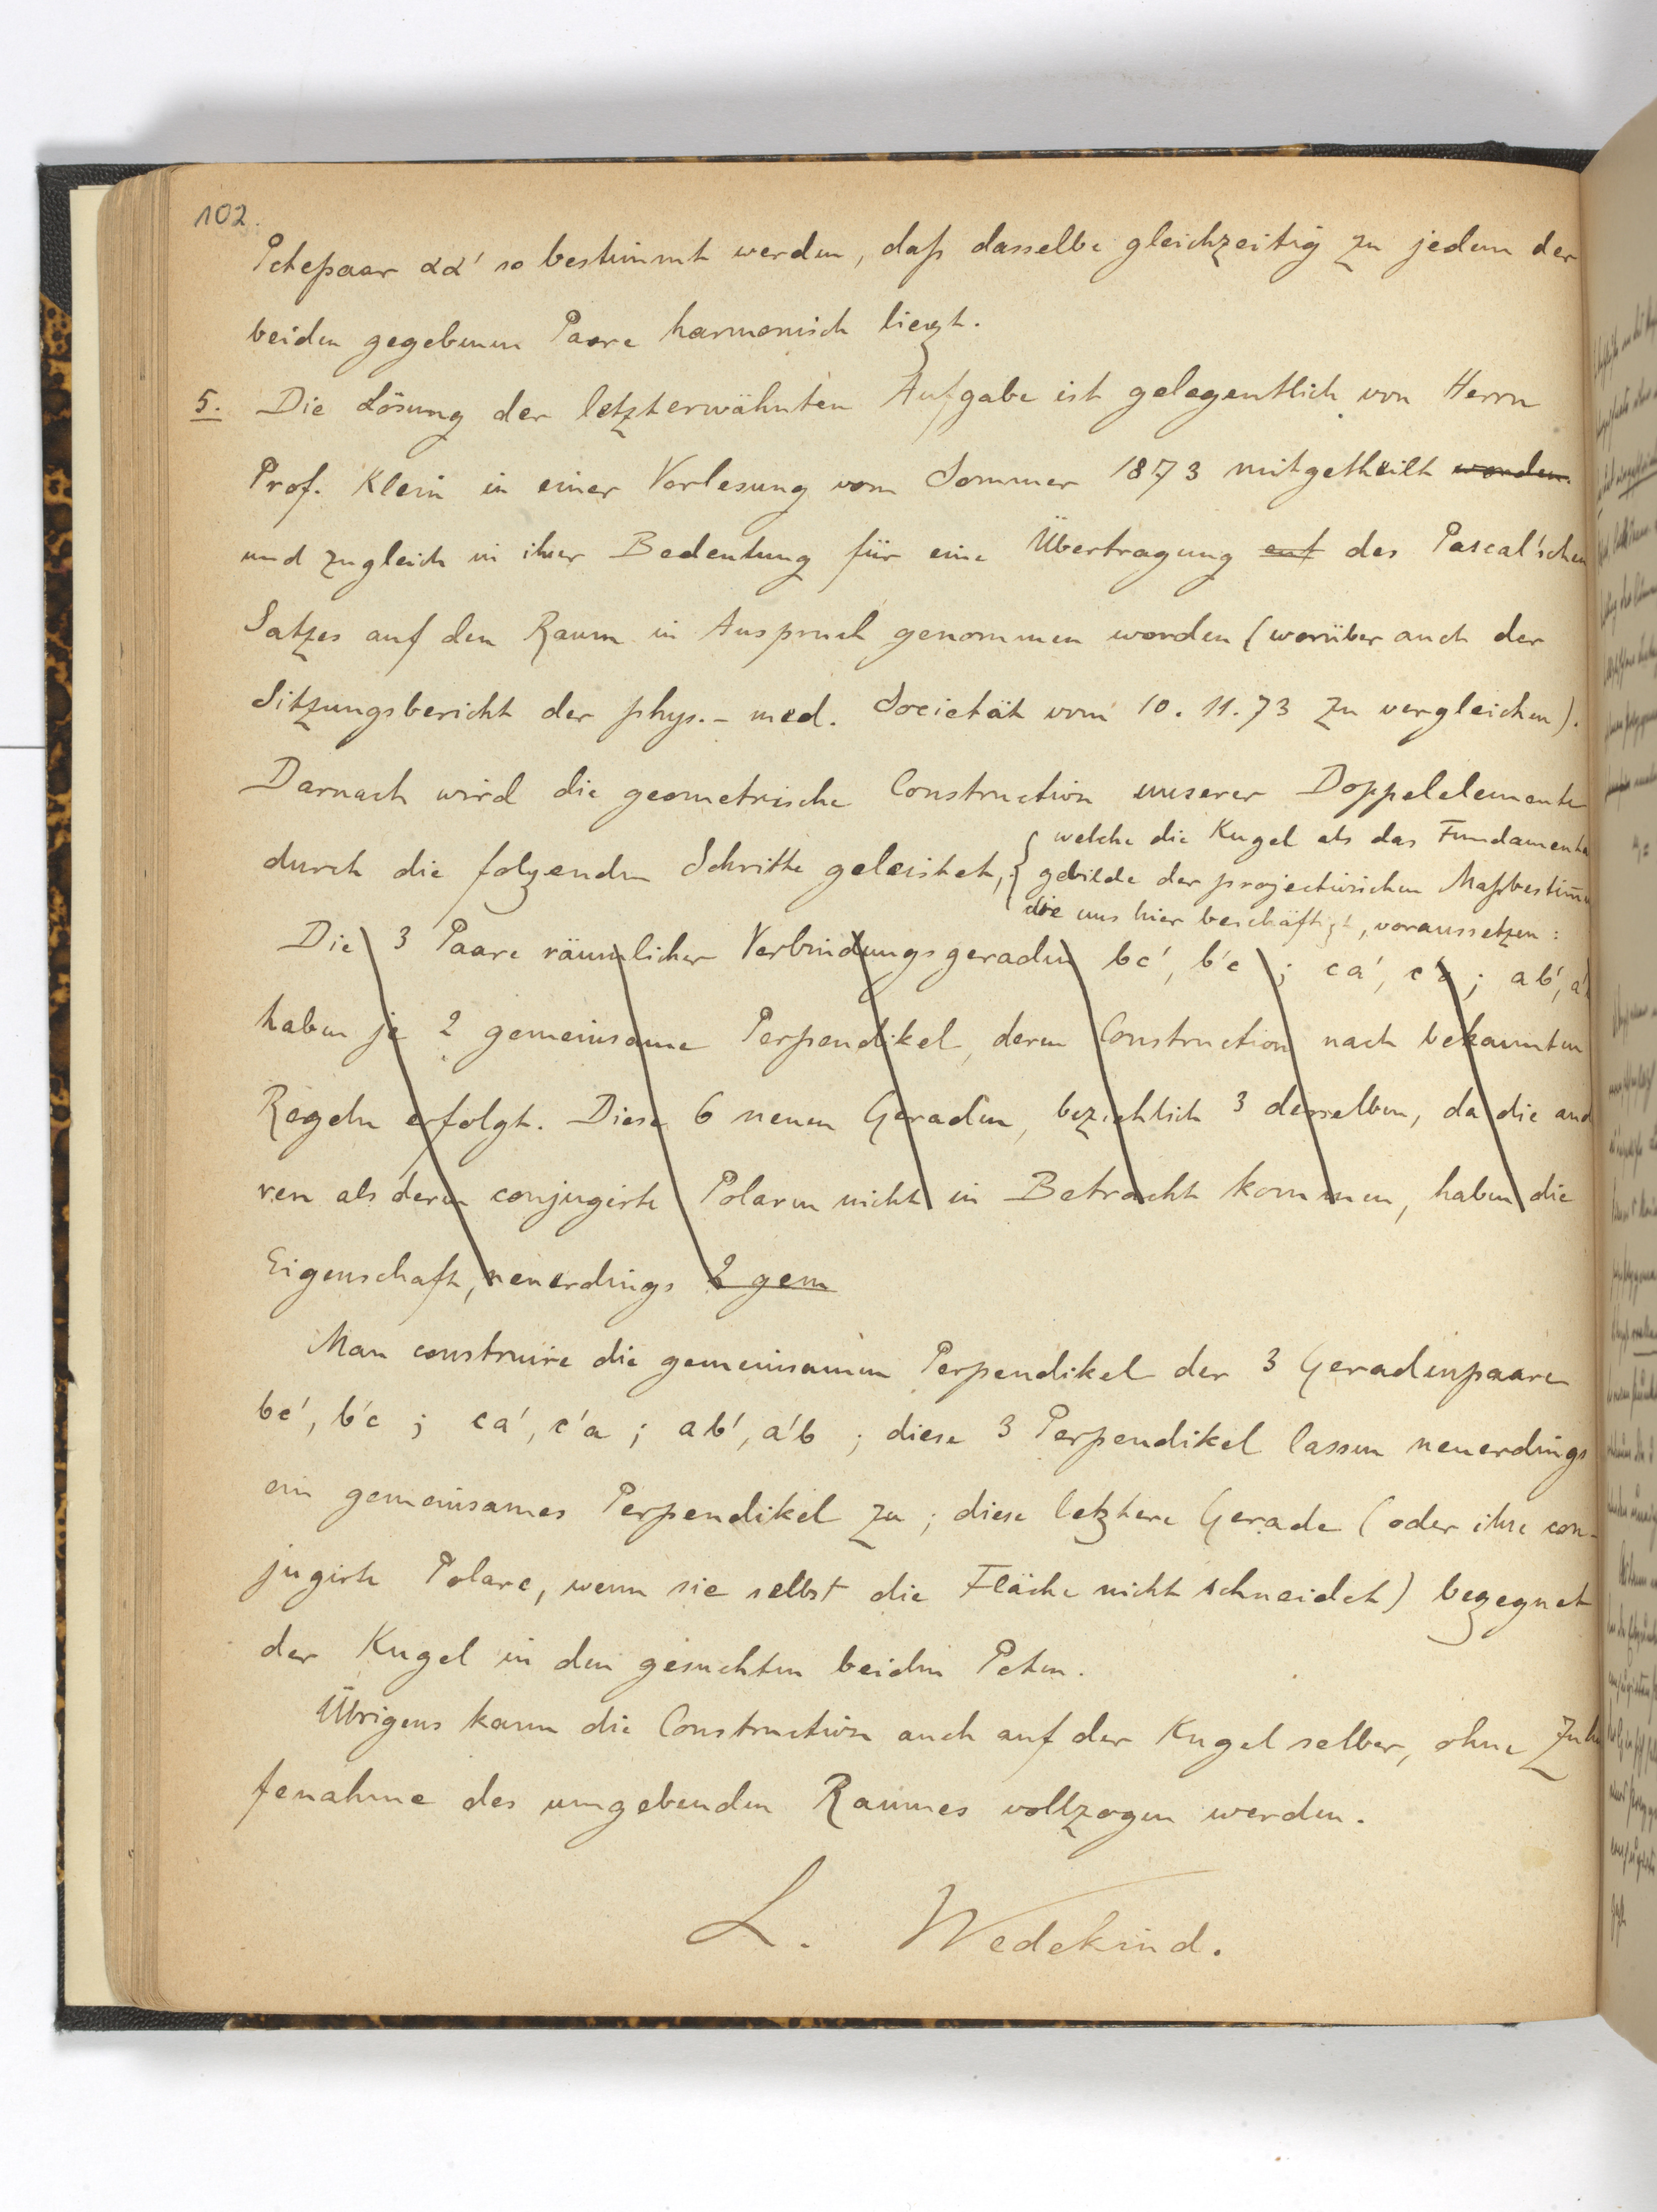 102.
Pctepaar αα' so bestimmt werden, daß dasselbe gleichzeitig zu jedem der
beiden gegebenen Paare harmonisch liegt.
5. Die Lösung der letzterwähnten Aufgabe ist gelegentlich von Herrn
Prof. Klein in einer Vorlesung vom Sommer 1873 mitgetheilt worden.
und zugleich in ihrer Bedeutung für eine Übertragung auf des Pascal'schen
Satzes auf den Raum in Anspruch genommen worden (worüber auch der
Sitzungsbericht der phys.- med. Societät vom 10. 11. 73 zu vergleichen).
Darnach wird die geometrische Construction unserer Doppelelemente
durch die folgenden Schritte geleistet, { welche die Kugel als das Fundamental
gebilde der projectivischen Maßbestimmu
die uns hier beschäftigt, voraussetzen:
Die 3 Paare räumlicher Verbindungsgeraden bc', b'c ; ca', c'a ; ab', a'b
haben je 2 gemeinsame Perpendikel, deren Construction nach bekannten
Regeln erfolgt. Diese 6 neuen Geraden, bezichtlich 3 derselben, da die and
ren als deren conjugirte Polaren nicht in Betracht kommen, haben die
Eigenschaft, neuerdings 2 gem
Man construire die gemeinsamen Perpendikel der 3 Geradenpaare
bc', b'c ; ca', c'a ; ab', a'b ; diese 3 Perpendikel lassen neuerdings
ein gemeinsames Perpendikel zu ; diese letztere Gerade (oder ihre con-
jugirte Polare, wenn sie selbst die Fläche nicht schneidet) begegnet
der Kugel in den gesuchten beiden Pcten.
Übrigens kann die Construction auch auf der Kugel selber, ohne Zuhü
fenahme des umgebenden Raumes vollzogen werden.
L. Wedekind.